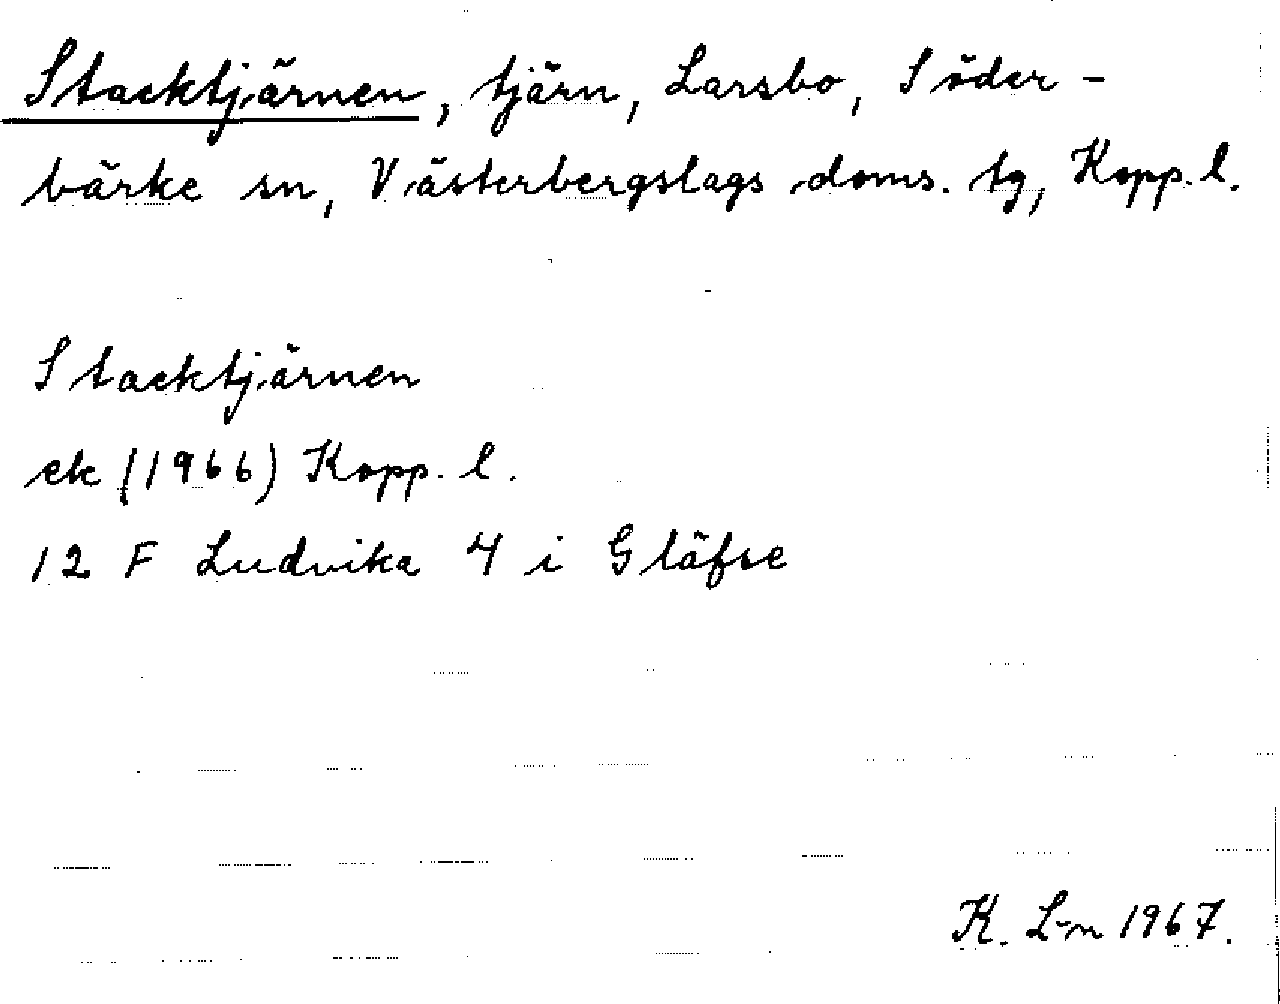 Stacktjärnen, tjärn, Larsbo, Söder-
bärke sn, Västerbergslags doms. tg, Kopp. l.
Stacktjärnen
ek (1966) Kopp. l.
12 F Ludvika 4 i Gläfse
K. L-n 1967.